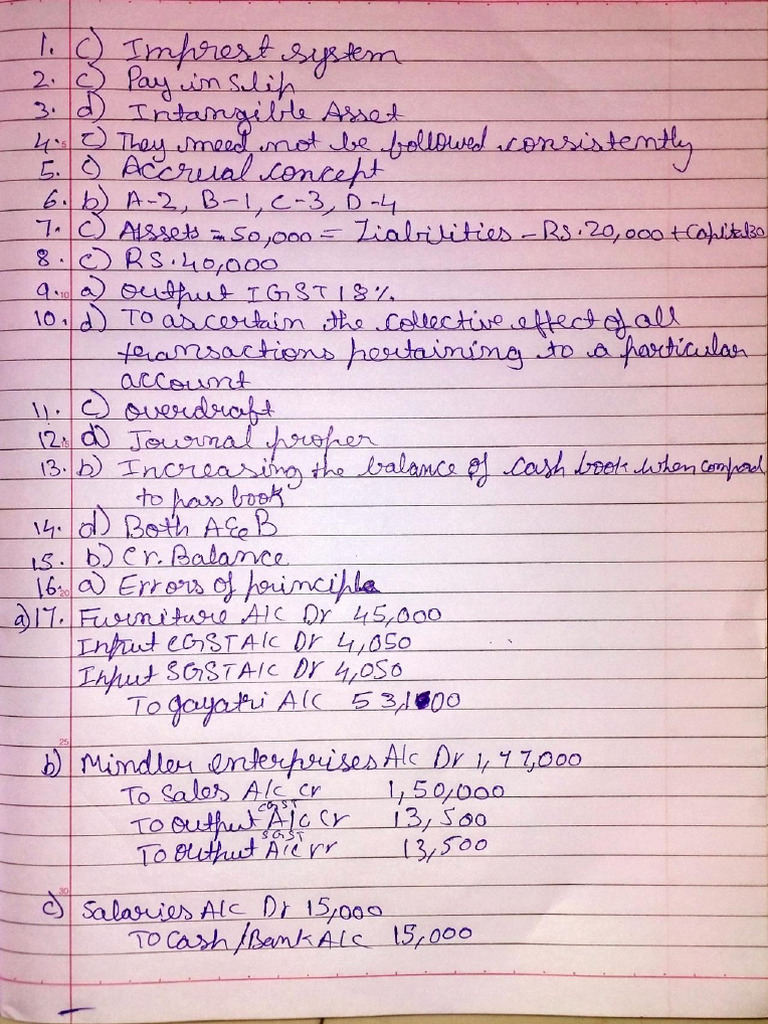 1. c) Imprest system
2. c) Pay in Slip
3. d) Intangible Asset
4. c) They need not be followed consistently
5. c) Accrual concept
6. b) A-2, B-1, C-3, D-4
7. c) Assets = 50,000 = Liabilities - RS.20,000 + Capital 30
8. c) RS.40,000
9. a) output IGST 18%
10. d) To ascertain the collective effect of all
transactions pertaining to a particular
account
11. c) overdraft
12. d) Journal proper
13. b) Increasing the balance of cash book when compared
to pass book
14. d) Both A & B
15. b) Cr. Balance
16. a) Errors of principle
a) 17. Furniture A/c Dr 45,000
Input CGST A/c Dr 4,050
Input SGST A/c Dr 4,050
To gayatri A/c 53,100
b) Mindler enterprises A/c Dr 1,77,000
To Sales A/c cr 1,50,000
To output CGST A/c Cr 13,500
To output SGST A/c rr 13,500
c) Salaries A/c Dr 15,000
To Cash/Bank A/c 15,000